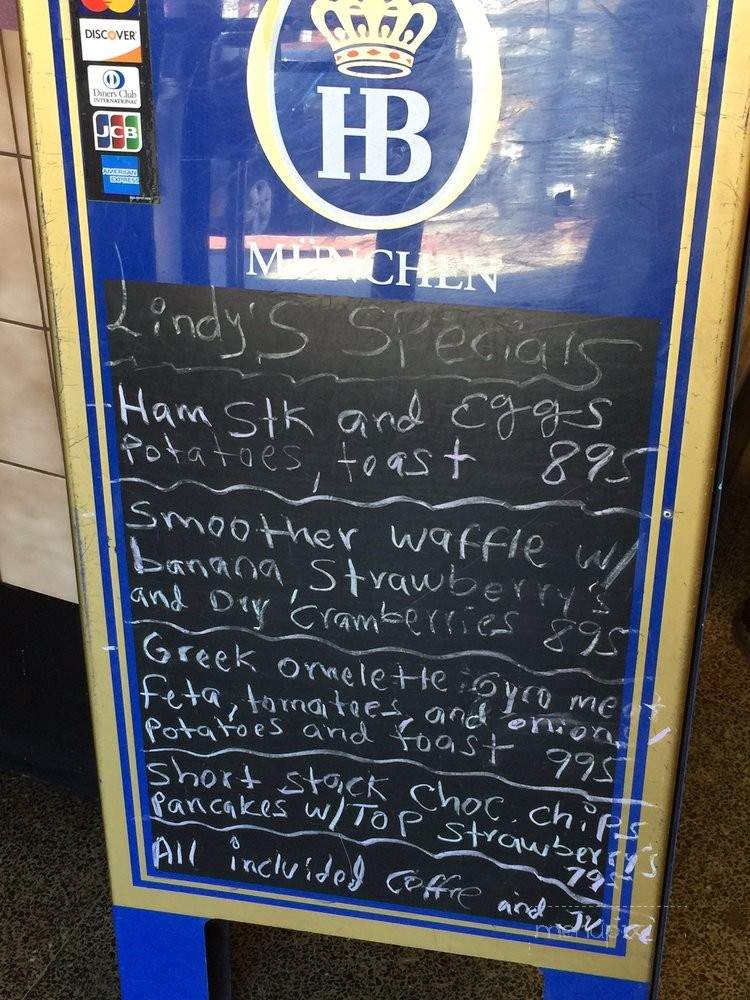 DISCOVER
Diners Club
INTERNATIONAL
JCB
AMERICAN
EXPRESS
HB
MÜNCHEN
Lindy's Specials
Ham Stk and Eggs
potatoes, toast 895
Smoother waffle w/
banana, Strawberry's
and Dry Cramberries 895
Greek omelette Gyro meat
feta, tomatoes, and onion,
potatoes and toast 995
Short stack Choc. chips
pancakes w/Top Strawberry's
795
All included Coffee and Juice
menupix